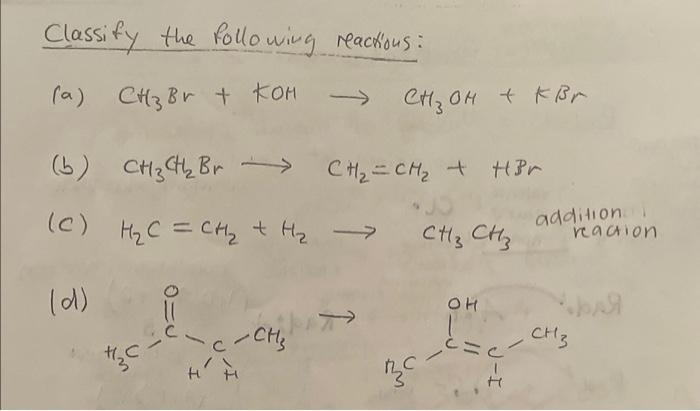 Classify the following reactions:
(a) CH3Br + KOH → CH3OH + KBr
(b) CH3CH2Br → CH2=CH2 + HBr
(c) H2C = CH2 + H2 → CH3CH3 addition reaction
(d)
O OH
H3C C C CH3 → H3C C = C CH3
H H H